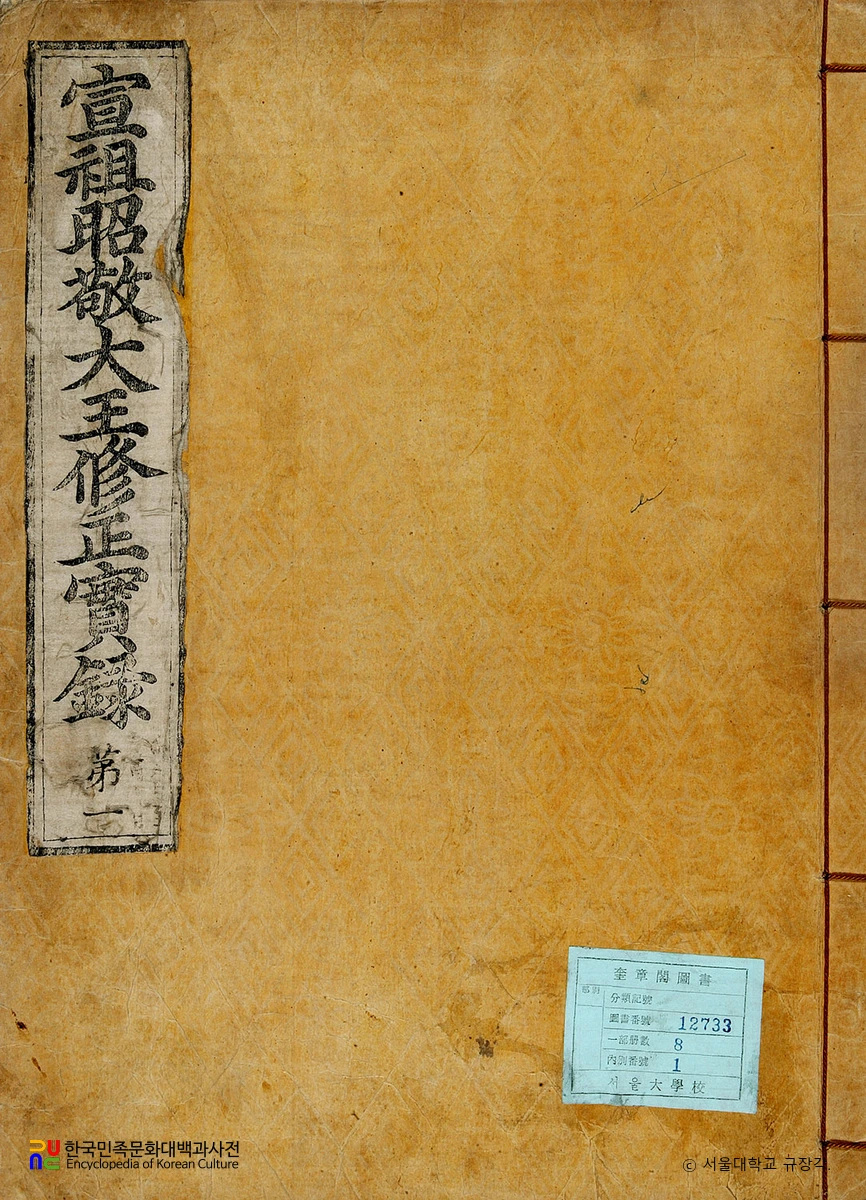 宣祖昭敬大王修正實錄
第一
奎章閣圖書
分類記號
圖書番號 12733
一部冊數 8
內別番號 1
서울大學校
한국민족문화대백과사전
Encyclopedia of Korean Culture
ⓒ 서울대학교 규장각.